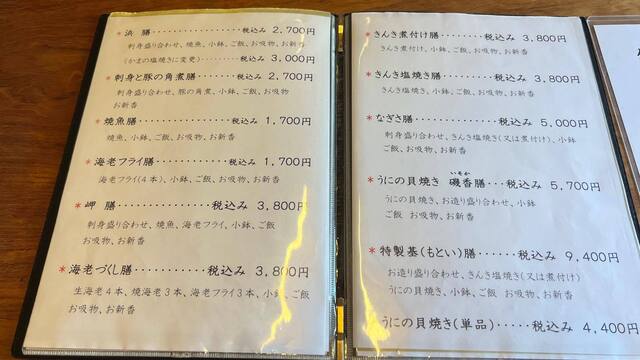 *浜 膳・・・・・・・・・・・・・・・・税込み 2,700円
刺身盛り合わせ、焼魚、小鉢、ご飯、お吸物、お新香
(かまの塩焼きに変更)・・・・・・・・・税込み 3,000円
*刺身と豚の角煮膳・・・・・税込み 2,700円
刺身盛り合わせ、豚の角煮、小鉢、ご飯、お吸物
お新香
*焼魚膳・・・・・・・・・・・・・・・税込み 1,700円
焼魚、小鉢、ご飯、お吸物、お新香
*海老フライ膳・・・・・・・・・・税込み 1,700円
海老フライ(4本)、小鉢、ご飯、お吸物、お新香
*岬 膳・・・・・・・・・・・・税込み 3,800円
刺身盛り合わせ、焼魚、海老フライ、小鉢、ご飯
お吸物、お新香
*海老づくし膳・・・・・・・・・・税込み 3,800円
生海老4本、焼海老3本、海老フライ3本、小鉢、ご飯
お吸物、お新香
*きんき煮付け膳・・・・・・・・・税込み 3,800円
きんき煮付け、小鉢、ご飯、お吸物、お新香
*きんき塩焼き膳・・・・・・・・・税込み 3,800円
きんき塩焼き、小鉢、ご飯、お吸物、お新香
*なぎさ膳・・・・・・・・・・・・税込み 5,000円
刺身盛り合わせ、きんき塩焼き(又は煮付け)、小鉢
ご飯、お吸物、お新香
*うにの貝焼き 磯香膳・・・税込み 5,700円
いそか
うにの貝焼き、お造り盛り合わせ、小鉢
ご飯 お吸物、お新香
*特製基(もとい)膳・・・・・・税込み 9,400円
お造り盛り合せ、きんき塩焼き(又は煮付け)
うにの貝焼き、小鉢、ご飯 お吸物、お新香
うにの貝焼き(単品)・・・・・税込み 4,400円